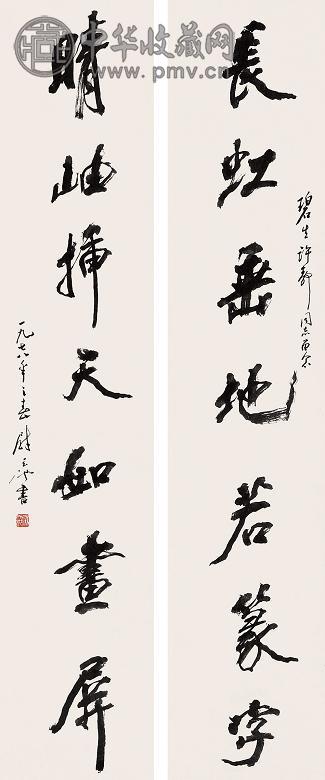 中华收藏网
www.pmv.cn
長虹垂地若篆字
碧生许静同志两正
晴岫插天如畫屏
一九七八年之春尉天池書